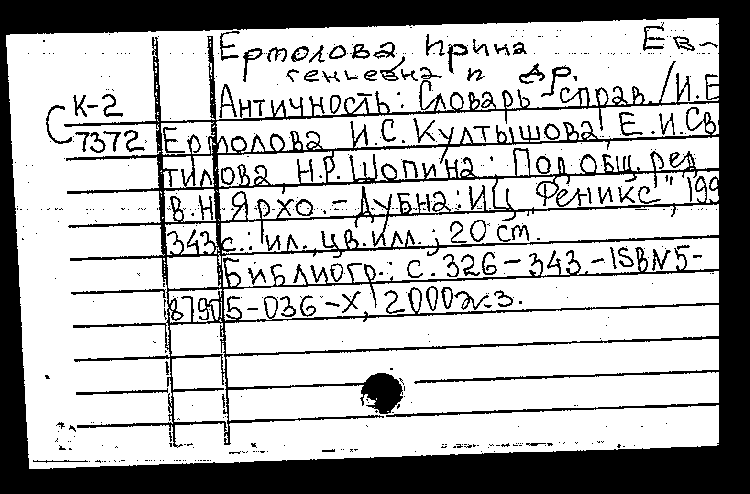 Ермолова, Ирина Ев-
геньевна и др.
К-2 Античность: Словарь-справ./И.Е
С 7372 Ермолова, И.С. Култышова, Е.И.Све
тилова, Н.Р. Шопина; Под общ. ред
В.Н Ярхо.-Дубна: ИЦ „Феникс", 199
343 с.: ил., цв.илл.; 20 см.
Библиогр.: с. 326-343.-ISBN5-
87905-036-X, 2000экз.